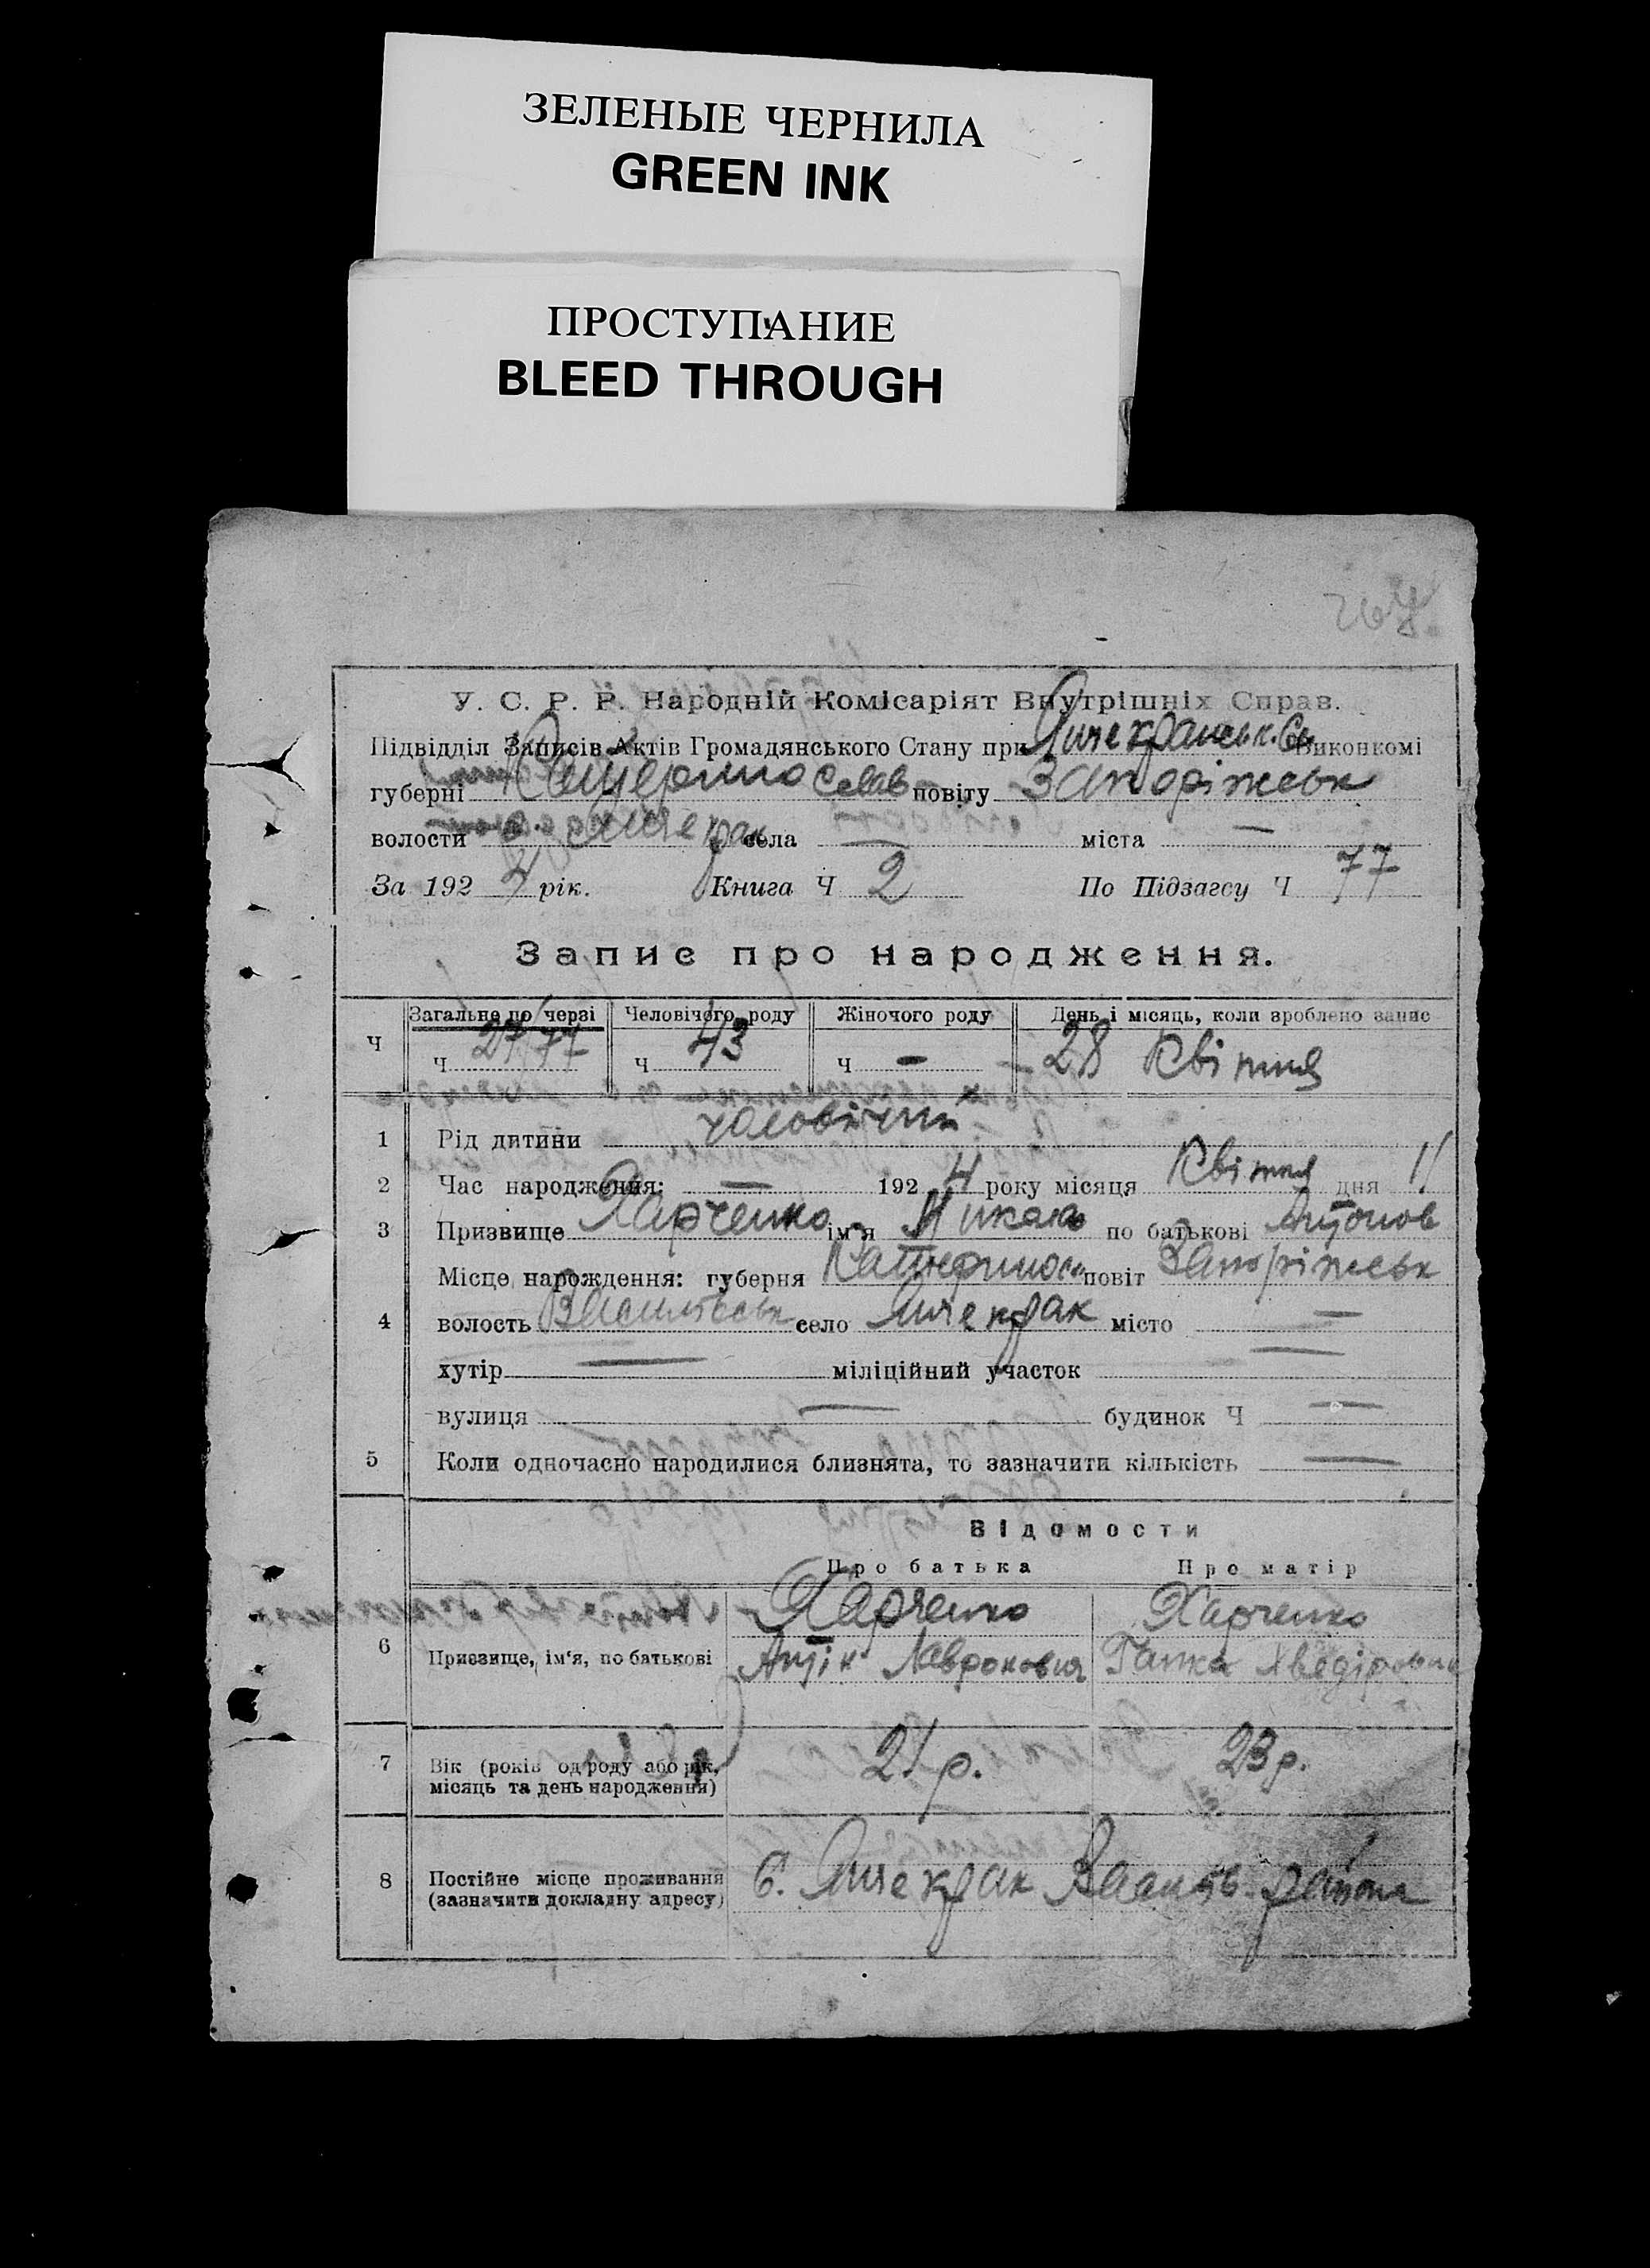 ЗЕЛЕНЫЕ ЧЕРНИЛА
GREEN INK
ПРОСТУПАНИЕ
BLEED THROUGH
У. С. Р. Р. Народній Комісаріят Внутрішніх Справ.
Підвідділ Записів Актів Громадянського Стану при Янчекранськ. Виконкомі
губерні Катеринослав повіту Запоріжськ
волости с. Янчекрак села — міста —
За 1924 рік. Книга Ч 2 По Підзагсу Ч 77
Запис про народження.
Загальне по черзі Чоловічого роду Жіночого роду День і місяць, коли зроблено запис
Ч Ч 27/77 Ч 43 Ч — 28 Квітня
1 Рід дитини чоловічий
2 Час народження: — 1924 року місяця Квітня дня 11
3 Призвище Харченко ім'я Микола по батькові Антонов
Місце народження: губерня Катеринос. повіт Запоріжськ
4 волость Васильевськ село Янчекрак місто —
хутір — міліційний участок
вулиця — будинок Ч —
5 Коли одночасно народилися близнята, то зазначити кількість —
Відомости
Про батька Про матір
Харченко Харченко
6 Призвище, ім'я, по батькові Антін Лавронович Ганка Хведіровна
7 Вік (років од роду або рік, 21 р. 23 р.
місяць та день народження)
8 Постійне місце проживання С. Янчекрак Василів. района
(зазначити докладну адресу)